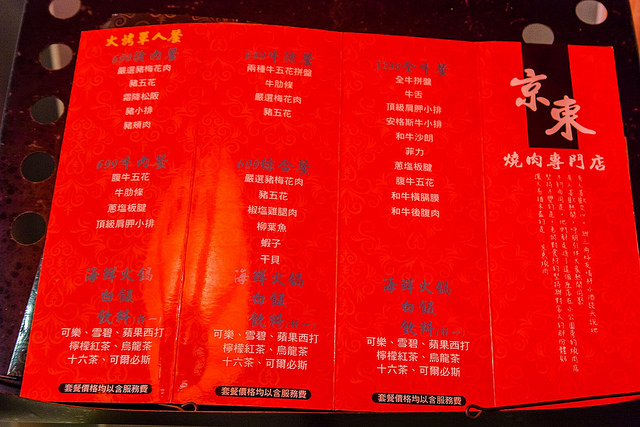 火烤單人餐
嚴選豬梅花肉
豬五花
霜降松阪
豬小排
豬頰肉
腹牛五花
牛肋條
蔥塩板腱
頂級肩胛小排
海鮮火鍋
白飯
飲料
可樂、雪碧、蘋果西打
檸檬紅茶、烏龍茶
十六茶、可爾必斯
套餐價格均以含服務費
兩種牛五花拼盤
牛肋條
嚴選梅花肉
豬五花
嚴選豬梅花肉
豬五花
椒塩雞腿肉
柳葉魚
蝦子
干貝
海鮮火鍋
白飯
飲料
可樂、雪碧、蘋果西打
檸檬紅茶、烏龍茶
十六茶、可爾必斯
套餐價格均以含服務費
全牛拼盤
牛舌
頂級肩胛小排
安格斯牛小排
和牛沙朗
菲力
蔥塩板腱
腹牛五花
和牛橫膈膜
和牛後腹肉
海鮮火鍋
白飯
飲料
可樂、雪碧、蘋果西打
檸檬紅茶、烏龍茶
十六茶、可爾必斯
套餐價格均以含服務費
京東
燒肉專門店